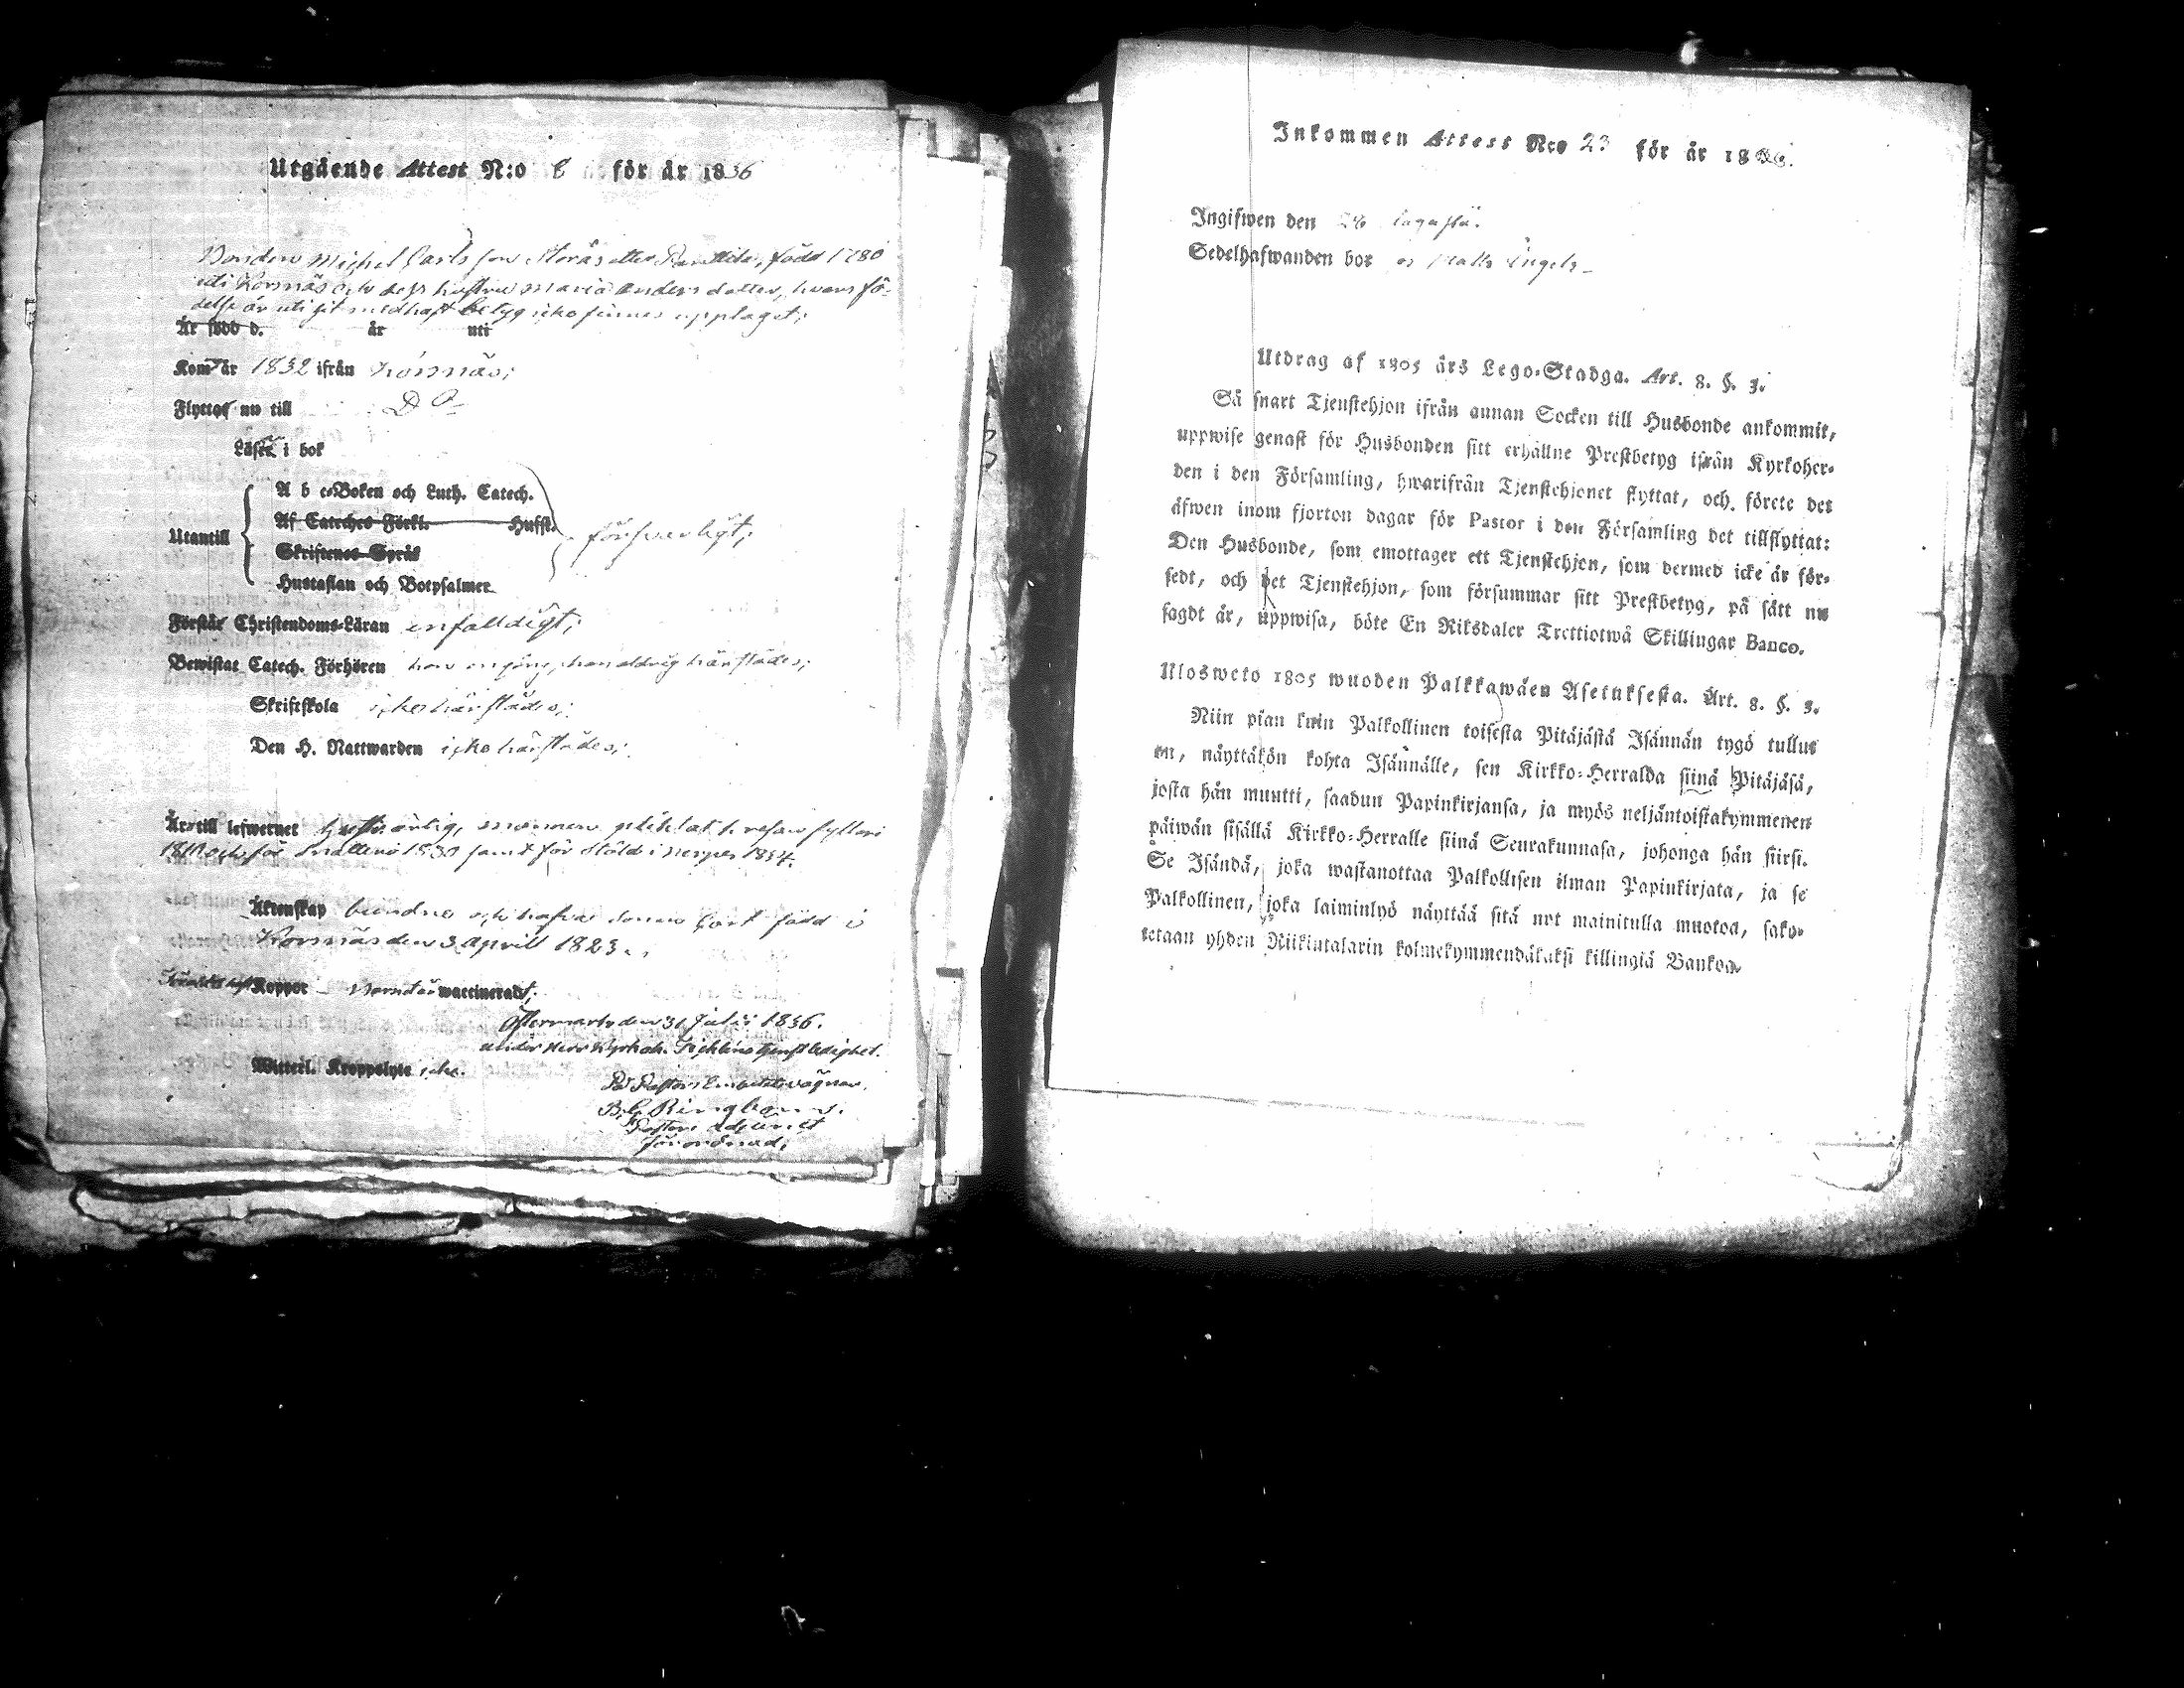 Utgående Attest N:o 8 för år 1836
Bonden Michel Carlsson Storås eller, född 1780
uti Korsnäs och dess hustru Maria Andersdotter, hvars fö-
delse år uti sit medhaft betyg icke finnes upptaget;
Är född d. år uti
Kom år 1832 ifrån Korsnäs;
Flyttar nu till Do
Läser i bok
Utantill
A b c-Boken och Luth. Catech.
Af Cateches Förkl. Hufst.
Skriftenes Språk
Hustaflan och Botpsalmer
försvarligt;
Förstår Christendoms-Läran enfaldigt;
Bewistat Catech. Förhören hon en gång, han aldrig härstädes;
Skriftskola icke härstädes;
Den H. Nattwarden icke härstädes;
Är till lefwernet hustrun ärlig, mannen pliktat fylleri
och för 1830 samt för stöld i Nerpes 1834.
Äktenskap bundne och hafva sonen Carl född i
Korsnäs den 3 April 1823.
Koppor Barnet är waccineradt;
Östermark den 31 Julii 1836.
under Herr Kyrkoh. tjenstledighet.
Witterl. Kroppslyte icke.
På Pastors Embetets vägnar,
B. G. Ringbom.
Pastors Adjunct
förordnad;
Inkommen Attest N:o 23 för år 1836.
Ingifwen den
Sedelhafwanden bor
Utdrag af 1805 års Lego-Stadga. Art. 8. §. 3.
Så snart Tjenstehjon ifrån annan Socken till Husbonde ankommit,
uppwise genast för Husbonden sitt erhållne Prestbetyg ifrån Kyrkoher-
den i den Församling, hwarifrån Tjenstehjonet flyttat, och förete det
äfwen inom fjorton dagar för Pastor i den Församling det tillflyttat:
Den Husbonde, som emottager ett Tjenstehjon, som dermed icke är för-
sedt, och det Tjenstehjon, som försummar sitt Prestbetyg, på sätt nu
sagdt är, uppwisa, böte En Riksdaler Trettiotwå Skillingar Banco.
Ulosweto 1805 wuoden Palkkawäen Asetuksesta. Art. 8. §. 3.
Niin pian kuin Palkollinen toisesta Pitäjästä Isännän tygö tullut
on, näyttäkön kohta Isännälle, sen Kirkko-Herralda siinä Pitäjäsä,
josta hän muutti, saadun Papinkirjansa, ja myös neljäntoistakymmenen
päiwän sisällä Kirkko-Herralle siinä Seurakunnasa, johonga hän siirsi.
Se Isändä, joka wastanottaa Palkollisen ilman Papinkirjata, ja se
Palkollinen, joka laiminlyö näyttää sitä nyt mainitulla muotoa, sako-
tetaan yhden Riikintalarin kolmekymmendäkaksi killingiä Bankoa.